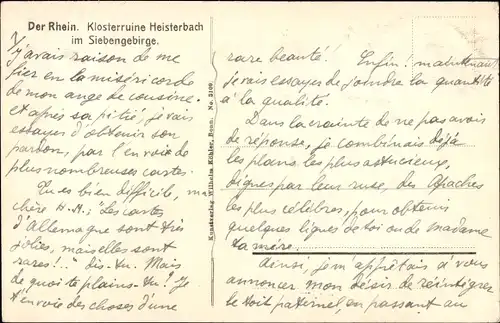 Der Rhein. Klosterruine Heisterbach
im Siebengebirge.
1/
J'avais raison de me
fier en la miséricorde
de mon ange de cousine.
et après sa pitié, je vais
essayer d'obtenir son
pardon, par l'envoi de
plus nombreuses cartes.
Tu es bien difficile, ma
chère H.M.; "Les cartes
d'Allemagne sont très
jolies, mais elles sont
rares!.." dis-tu. Mais
de quoi te plains-tu! Je
t'envoie des choses d'une
Kunstverlag Wilhelm Köhler, Bonn. No. 2109
rare beauté! Enfin! maintenant
je vais essayer de joindre la quantité
à la qualité.
Dans la crainte de ne pas avoir
de réponse, je combinais déjà
les plans les plus astucieux,
dignes par leur ruse, des Apaches
les plus célèbres, pour obtenir
quelques lignes de toi ou de madame
ta mère.
Ainsi, je m'apprêtais à vous
annoncer mon désir de réintégrer
le toit paternel, en passant au